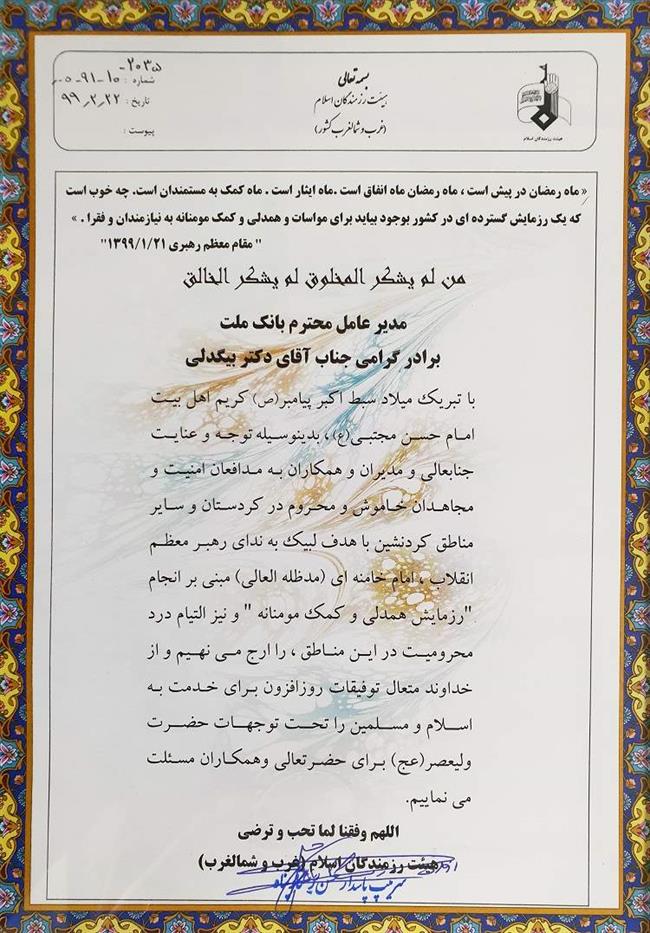 بسمه تعالی
هیئت رزمندگان اسلام
(غرب و شمالغرب کشور)
شماره :
تاریخ : ۹۹٫۲٫۲۲
پیوست :
هیئت رزمندگان اسلام
«ماه رمضان در پیش است ، ماه رمضان ماه انفاق است .ماه ایثار است . ماه کمک به مستمندان است. چه خوب است
که یک رزمایش گسترده ای در کشور بوجود بیاید برای مواسات و همدلی و کمک مومنانه به نیازمندان و فقرا . »
" مقام معظم رهبری ۱۳۹۹/۱/۲۱"
من لم یشکر المخلوق لم یشکر الخالق
مدیر عامل محترم بانک ملت
برادر گرامی جناب آقای دکتر بیگدلی
با تبریک میلاد سبط اکبر پیامبر(ص) کریم اهل بیت
امام حسن مجتبی(ع) ، بدینوسیله توجه و عنایت
جنابعالی و مدیران و همکاران به مدافعان امنیت و
مجاهدان خاموش و محروم در کردستان و سایر
مناطق کردنشین با هدف لبیک به ندای رهبر معظم
انقلاب ، امام خامنه ای (مدظله العالی) مبنی بر انجام
"رزمایش همدلی و کمک مومنانه " و نیز التیام درد
محرومیت در این مناطق ، را ارج می نهیم و از
خداوند متعال توفیقات روزافزون برای خدمت به
اسلام و مسلمین را تحت توجهات حضرت
ولیعصر(عج) برای حضرتعالی وهمکاران مسئلت
می نماییم.
اللهم وفقنا لما تحب و ترضی
هیئت رزمندگان اسلام (غرب و شمالغرب)